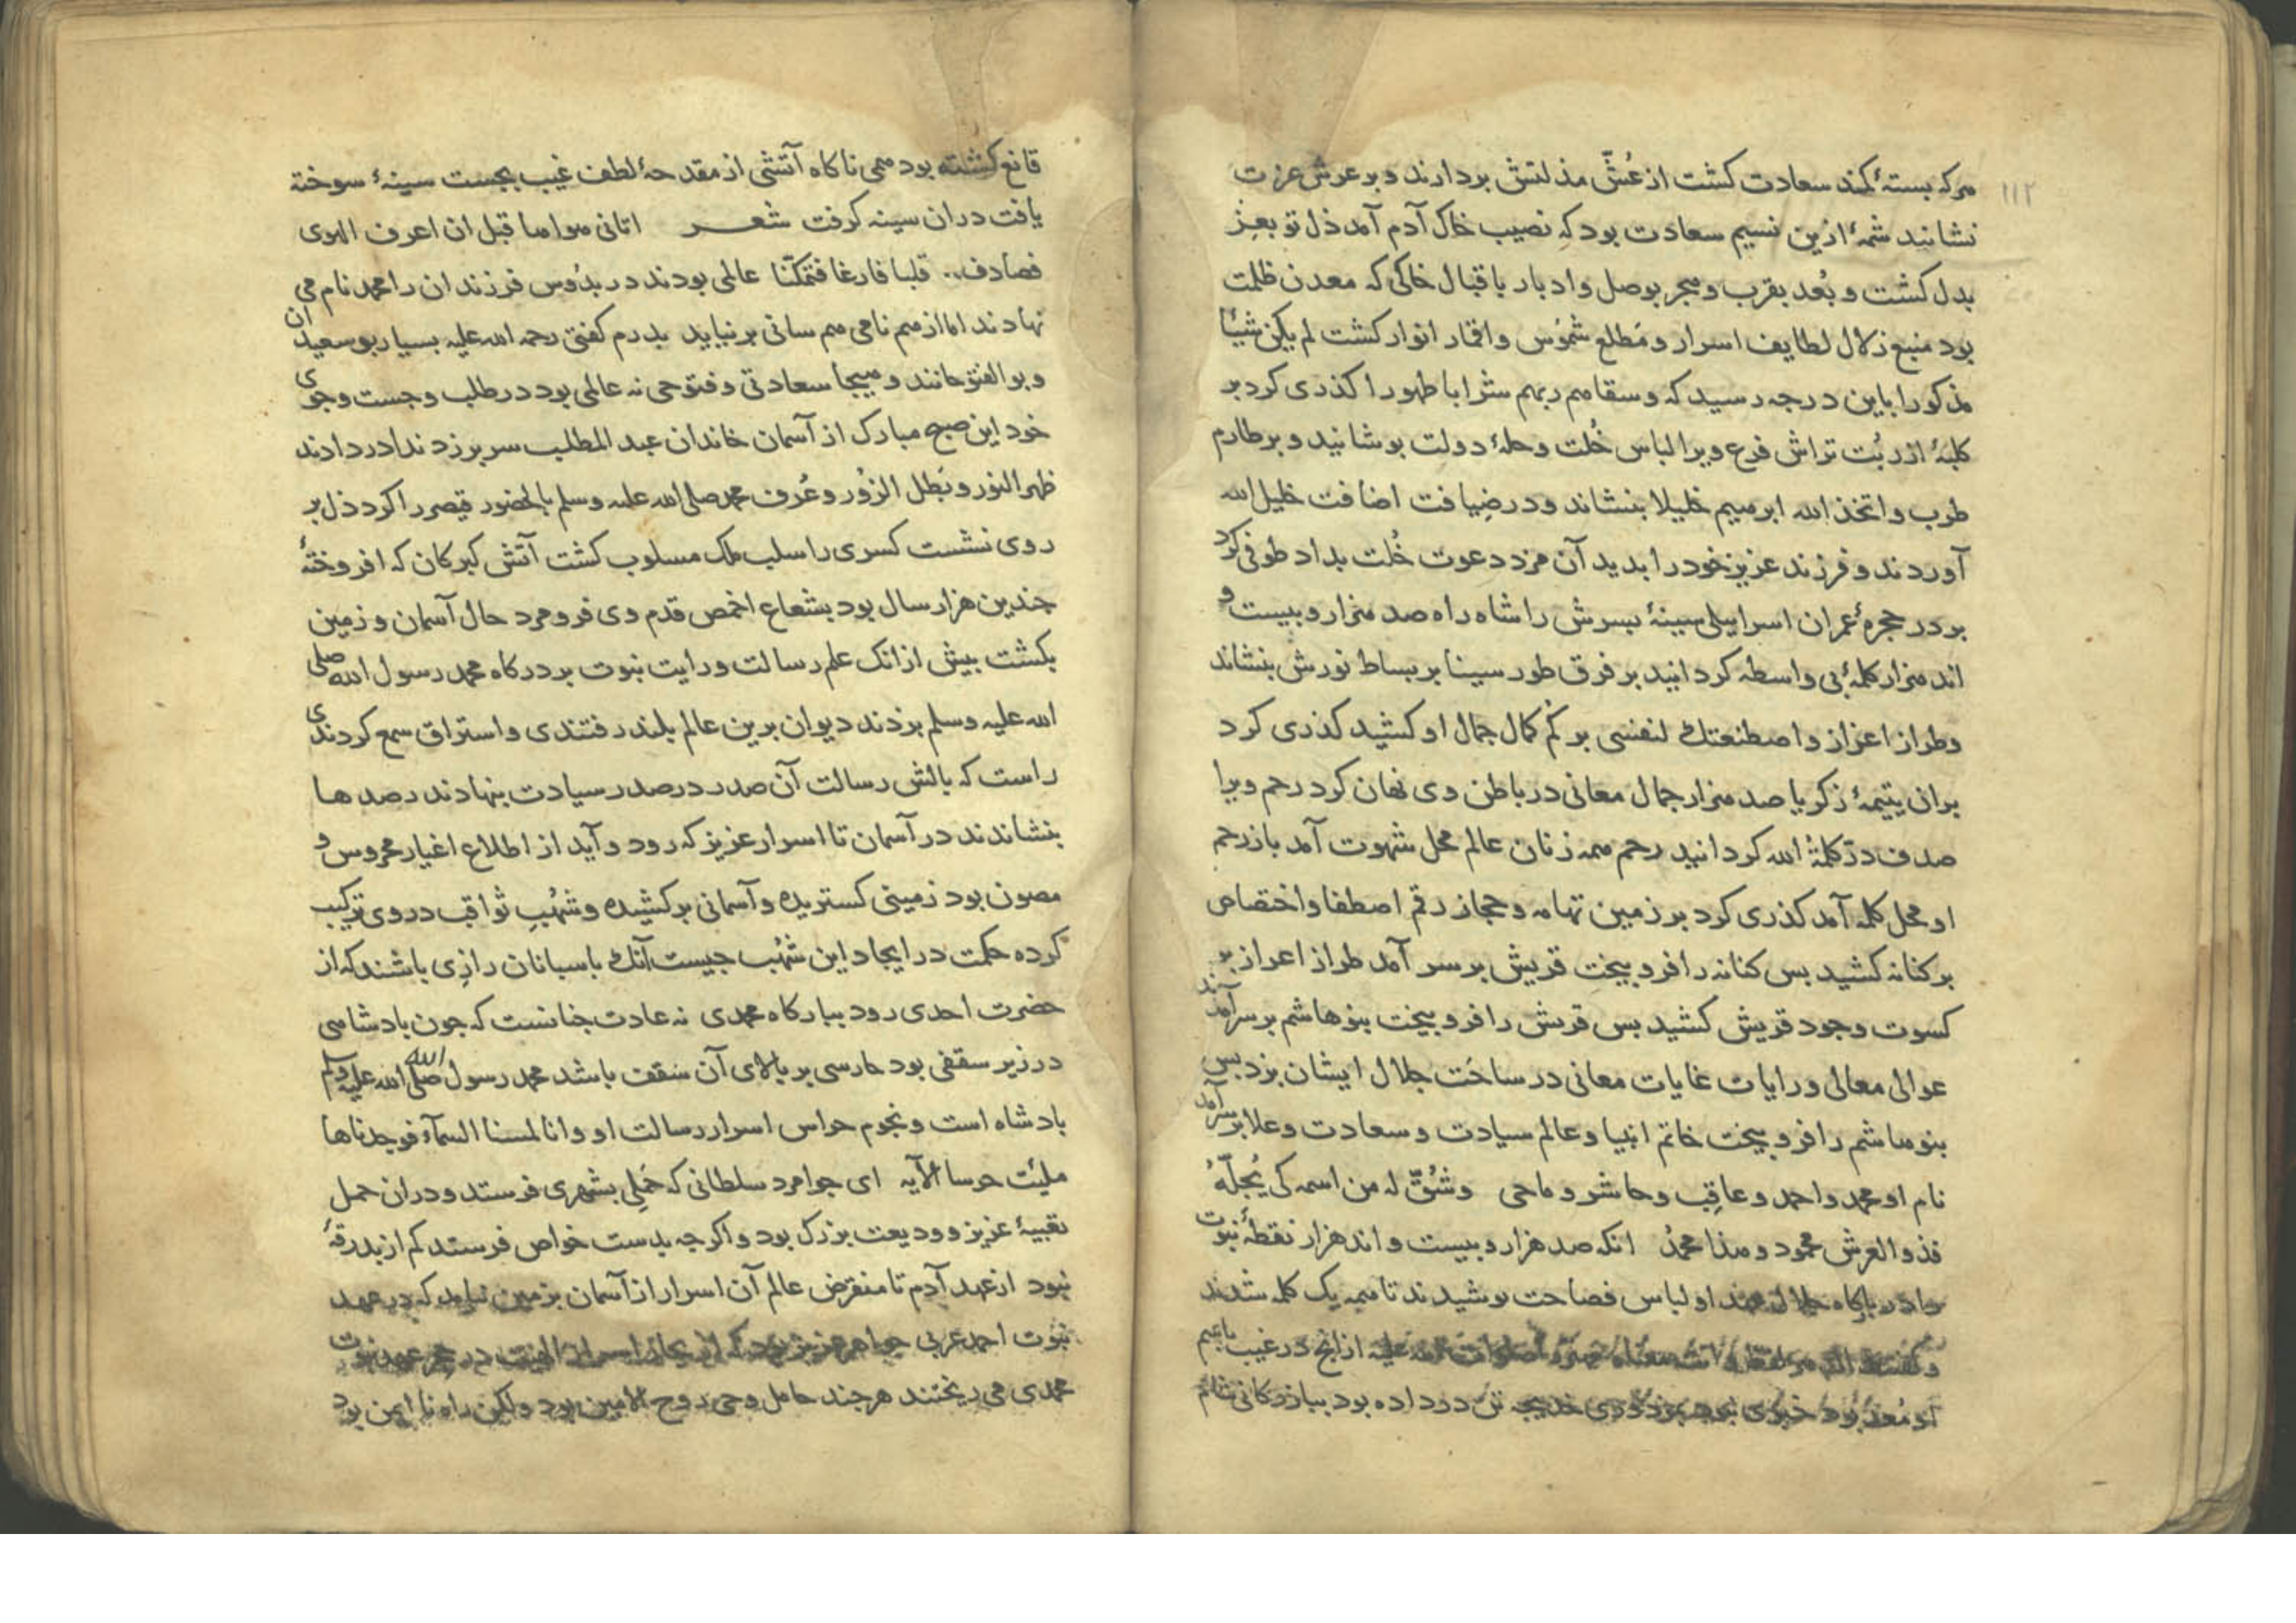 ۱۱۲
هرکه بستهٔ کمند سعادت کشت از عُشّ مذلتش بردارند و بر عرش عزت
نشانید شمهٔ ازین نسیم سعادت بود که نصیب خاک آدم آمد ذل تو بعِز
بدل کشت و بُعد بقرب و هجر بوصل و ادبار باقبال خاکی که معدن ظلمت
بود منبع زلال لطایف اسرار و مَطلع شمُوس و اقمار انوار کشت لم یکن شیئًا
مذکورا باین درجه رسید که و سقاهم ربهم شرابا طهورا کذری کرد بر
کلبهٔ ازر بُت تراش فرع ویرا لباس خُلت و حلهٔ دولت بوشانید و برطارم
طرب و اتخذ الله ابرهیم خلیلا بنشاند و در ضِیافت اضافت خلیل الله
آوردند و فرزند عزیز خود را بدید آن مزد دعوت خُلت بداد طوفی کرد
بر در حجرهٔ عمران اسراییلی سینهٔ بسرش را شاه راه صد هزار و بیست و
اند هزار کلمهٔ بی واسطه کردانید بر فرق طور سینا بر بساط نورش بنشاند
و طراز اعزاز و اصطنعتك لنفسی بر کُم کمال جمال او کشید کذری کرد
بران یتیمهٔ زکریا صد هزار جمال معانی در باطن وی نهان کرد رحم ویرا
صدف درّ کلمة الله کردانید رحم همه زنان عالم محل شهوت آمد باز رحم
او محل کلمه آمد کذری کرد بر زمین تهامه و حجاز رقم اصطفا و اختصاص
بر کنانه کشید بس کنانه را فرو بیخت قریش بر سر آمد طراز اعزاز بر
کسوت وجود قریش کشید بس قریش را فرو بیخت بنو هاشم بر سر آمدند
عوالی معالی و رایات غایات معانی در ساحَت جلال ایشان بزد بس
بنو هاشم را فرو بیخت خاتم انبیا و عالم سیادت و سعادت و علا بر سر آمد
نام او محمد و احمد و عاقِب و حاشر و ماحی وشُقّ له من اسمه کی یُجلّهُ
فذو العرش محمود و هذا محمدُ انکه صد هزار و بیست و اند هزار نقطهٔ نبوت
را در بارکاه جلال عهد او لباس فصاحت بوشیدند تا همه یک کلمه شدند
ازانچ در غیب باسم
او مُعدّ بود در داده بود ببازرکانی شام
قانع کشته بود همی ناکاه آتشی از مقدحهٔ لطف غیب بجست سینهٔ سوخته
یافت دران سینه کرفت شعر اتانی هواها قبل ان اعرف الهوی
فصادف قلبا فارغا فتمکنّا عالمی بودند در بدُوس فرزندان را محمد نام می
نهادند اما از هم نامی هم سانی بر نیاید بدرم کفتی رحمه الله علیه بسیار بو سعیدان
و بو الفتوحانند و هیجا سعادتی و فتوحی نه عالمی بود در طلب و جست و جوی
خود این صبح مبارک از آسمان خاندان عبد المطلب سر بر زد ندا در دادند
ظهر النور و بَطل الزوُر و عُرف محمد صلی الله علیه وسلم بالحضور قیصر را کرد ذل بر
روی نشست کسری را سلب ملک مسلوب کشت آتش کبرکان که افروختهٔ
جندین هزار سال بود بشعاع اخمص قدم وی فرو مرد حال آسمان و زمین
بکشت بیش از انک علم رسالت و رایت نبوت بر درکاه محمد رسول الله صلی
الله علیه وسلم بزدند دیوان برین عالم بلند رفتندی و استراق سمع کردندی
راست که بالش رسالت آن صدر در صدر سیادت بنهادند رصدها
بنشاندند در آسمان تا اسرار عزیز که رود و آید از اطلاع اغیار محروس و
مصون بود زمینی کستریده و آسمانی برکشیده و شهُبِ ثواقب در وی ترکیب
کرده حکمت در ایجاد این شهُب جیست آنك باسبانان رازی باشند که از
حضرت احدی رود ببارکاه محمدی نه عادت جنانست که جون بادشاهی
در زیر سقفی بود حارسی بر بالای آن سقف باشد محمد رسول الله صلی الله علیه وسلم
بادشاه است و نجوم حراس اسرار رسالت او و انا لمسنا السمآء فوجدناها
ملیٔت حرسا الآیه ای جوامرد سلطانی که حَملی بشهری فرستد و دران حمل
تعبیهٔ عزیز و ودیعت بزرک بود و اکرجه بدست خواص فرستد کم از بدرقهٔ
نبود از عهد آدم تا منقرض عالم آن اسرار از آسمان بزمین نیامد که در عهد
نبوت احمد عربی جواهر عزیز بود که از بحار اسرار الهیت در حجر عهد نبوت
محمدی می ریختند هرجند حامل وحی روح الامین بود ولکن راه نا ایمن بود